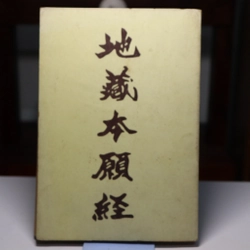 地藏本願経